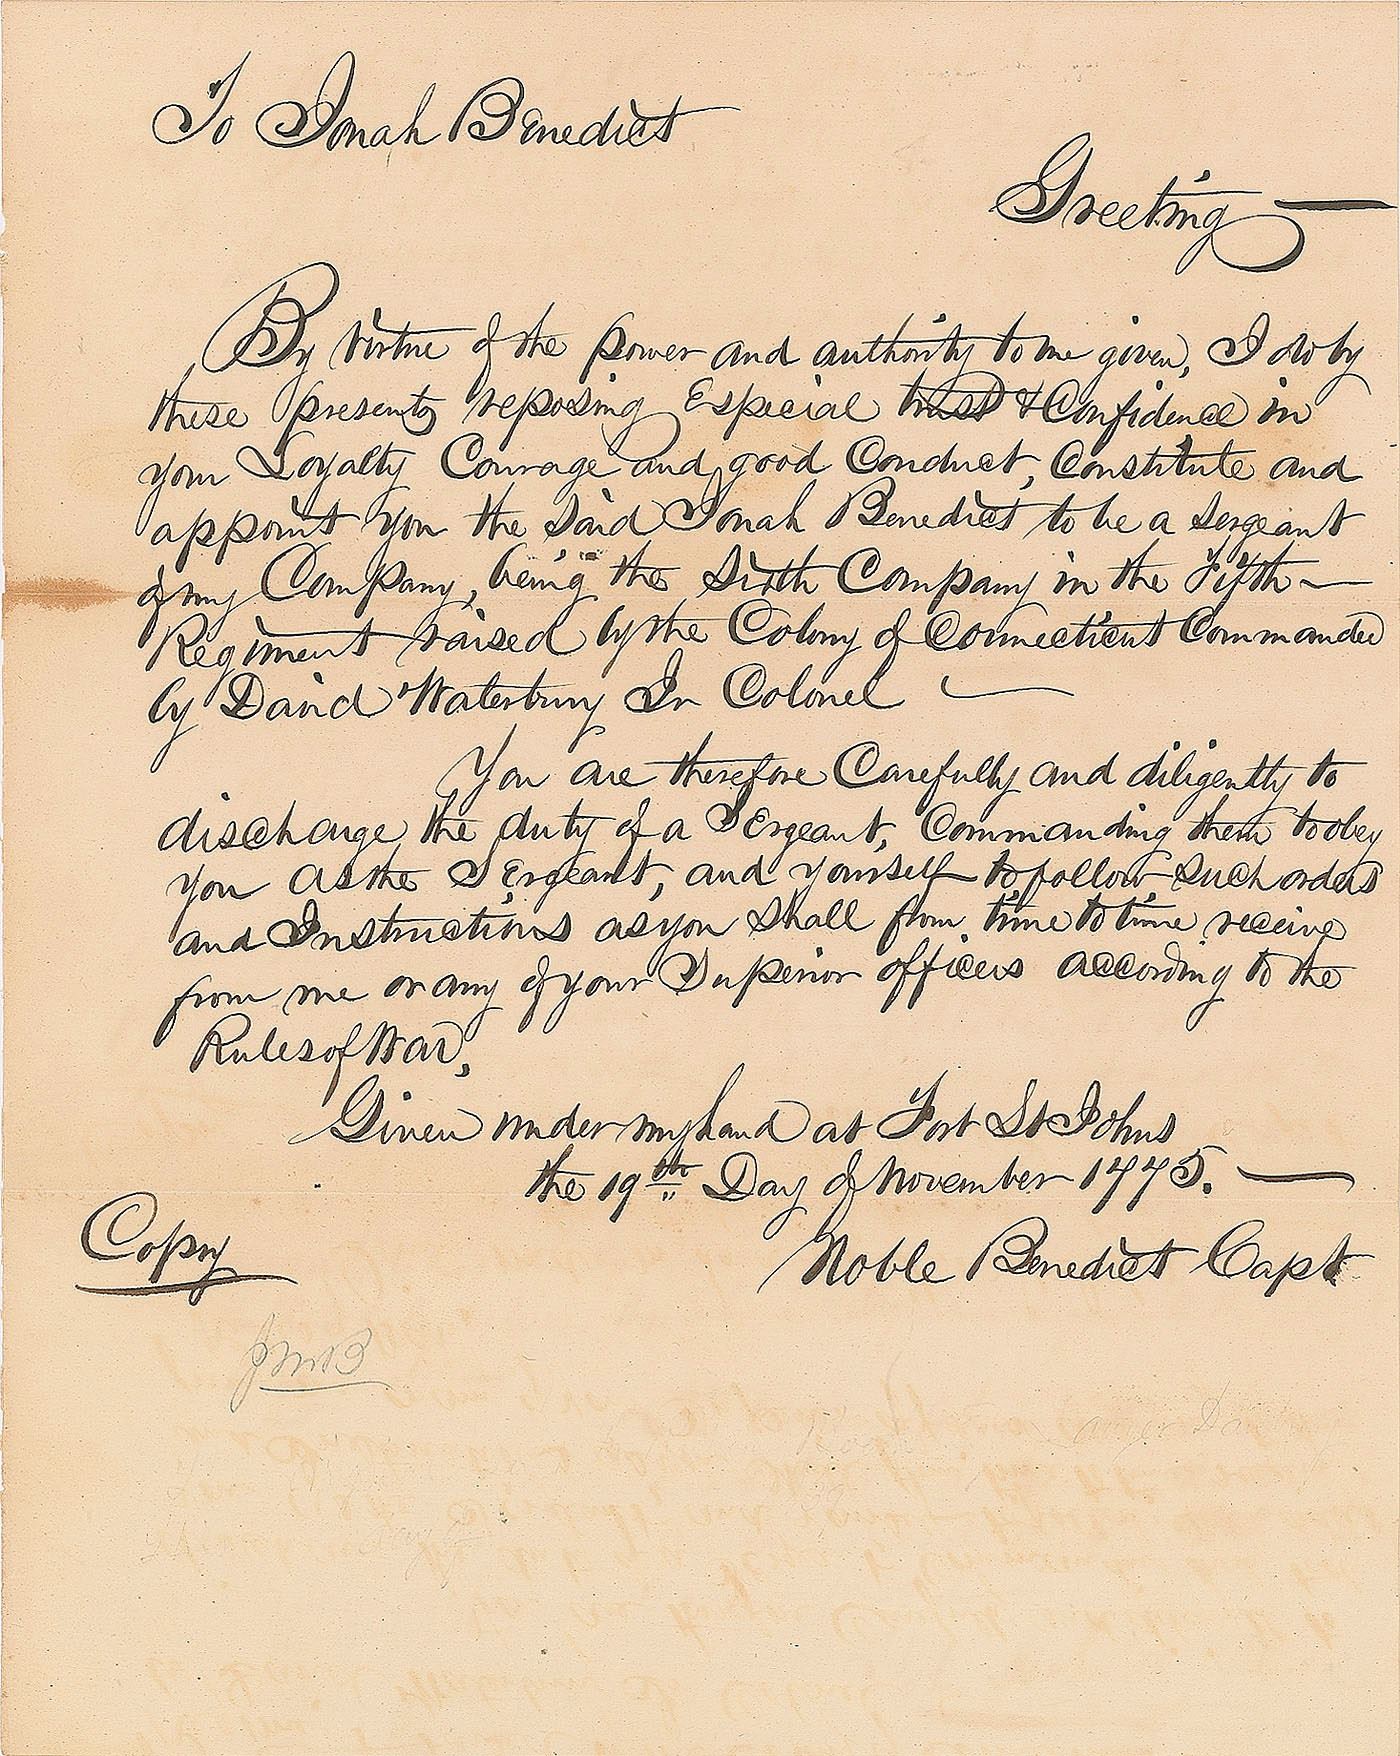 To Jonah Benedict
Greeting
By virtue of the power and authority to me given, I do by
these presents reposing Especial trust & Confidence in
your Loyalty Courage and good Conduct, Constitute and
appoint you the Said Jonah Benedict to be a Sergeant
of my Company, being the Sixth Company in the Fifth
Regiment raised by the Colony of Connecticut Commanded
by David Waterbury Jr Colonel
You are therefore Carefully and diligently to
discharge the duty of a Sergeant, Commanding them to obey
you as the Sergeant, and yourself to follow such orders
and Instructions as you Shall from time to time receive
from me or any of your Superior officers according to the
Rules of War,
Given under my hand at Fort St Johns
the 19th Day of November 1775.
Copy
Noble Benedict Capt